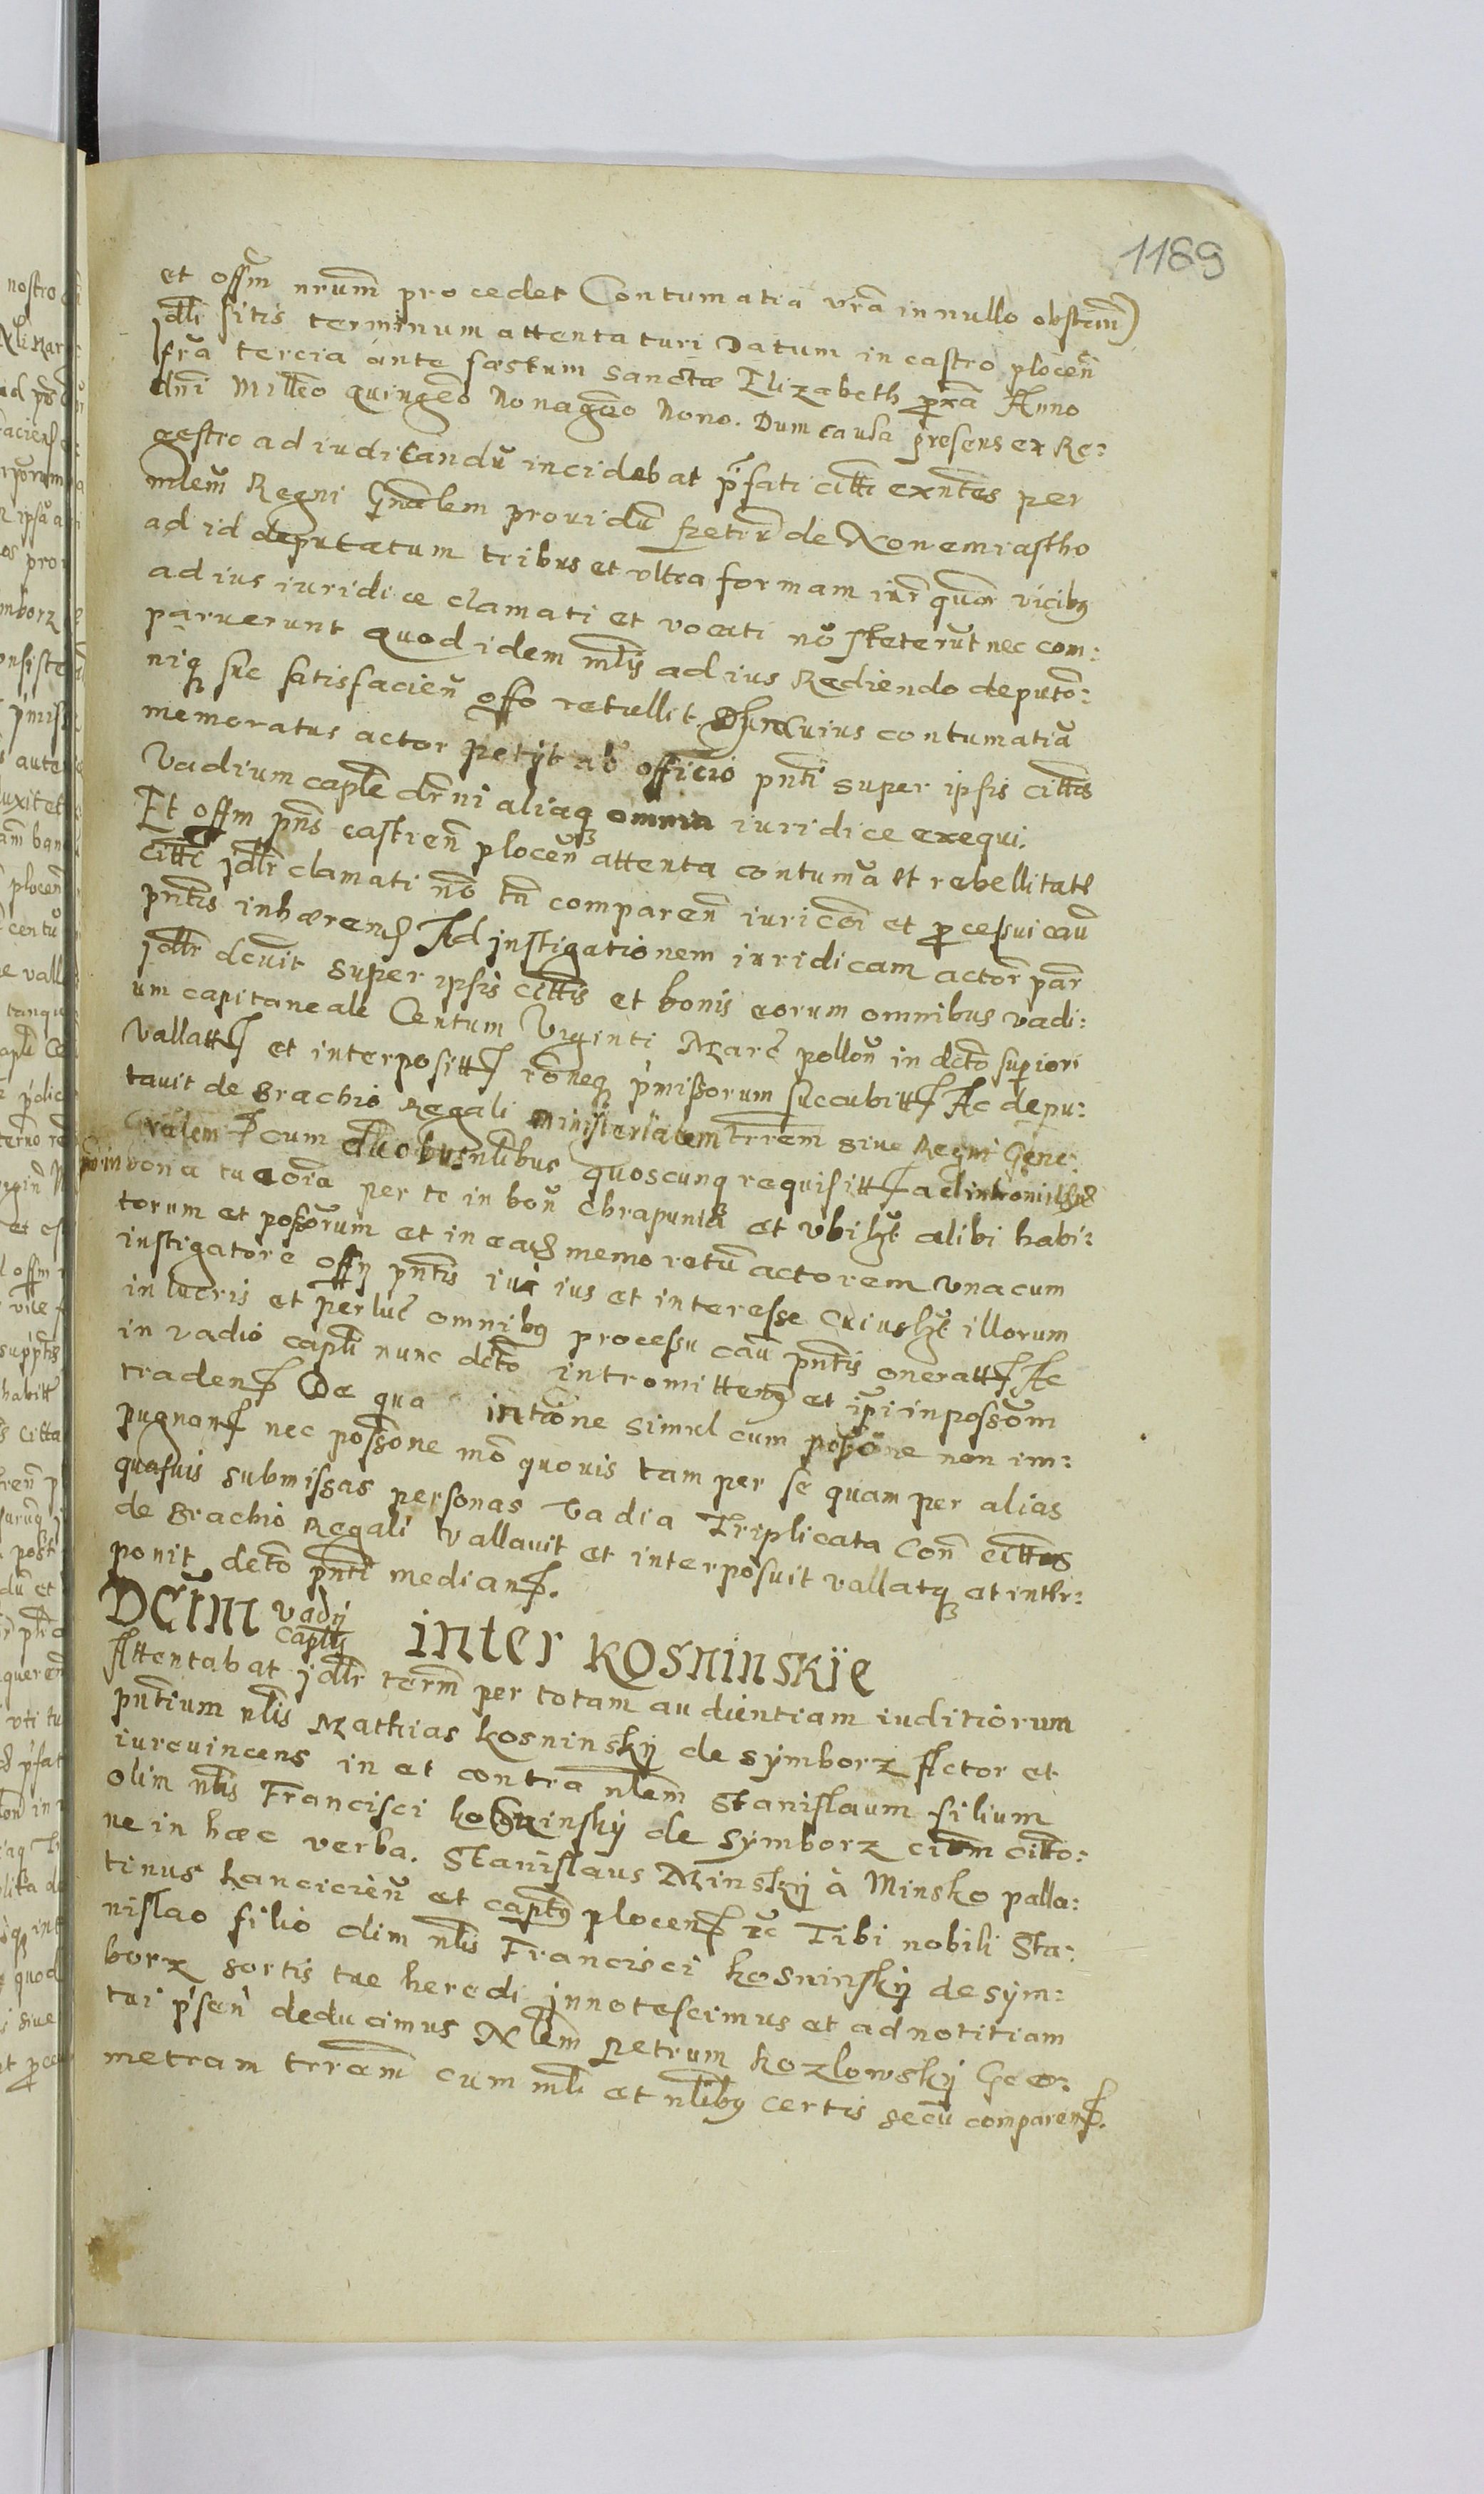 1189
et offm nrum procedet Contumatia vra in nullo obstan)
jdlr sitis terminum attentaturi Datum in castro plocen
fra tercia ante festum sanctæ Elizabeth proxa Anno
dni Milleo quingeo Nonageo Nono. Dum causa presens ex Re:
gestro ad iudicandu incidebat pfati citti exntes per
mlem Regni Gnalem prouidu Petru de Nonemiastho
ad id deputatum tribus et vltra formam iur quor vicibus
ad ius iuridice clamati et vocati no steterut nec com:
paruerunt quod idem mlis ad ius Rediendo deputo:
niq sue satisfacien offo retullit. cuius contumatia
memoratus actor petijt ab officio pnti super ipsis cittis
Vadium caple drni aliaq omnia iuridice exequi.
Et offm pns castren plocen attenta contuma et rebellitate
citti jdlr clamati no tn comparen iuri coi et processui cau
pntis inhærens Ad jnstigationem iuridicam actor par
jdlr dcuit super ipsis cittis et bonis eorum omnibus vadi:
um capitaneale Centum Viginti Marc pollon in dcto superiori
vallatt et interpositt roneq pmissorum succubitt Ac depu:
tauit de Brachio Regali ministerialem trrem siue Regni Gene:
ralem cum duobus nlibus quoscunq requisitt ad intromittend
in bona tua oia per te in bon Chrapunia et vbilzt alibi habi:
torum et possorum et in eas memoratu actorem vna cum
instigatore offij pntis iux ius et interesse cuiuslzt illorum
in lucris et perluc omnibus processu cau pntis oneratt Ac
in vadio capli nunc dcto intromitten et ipi in possom
traden De qua intione simul cum possone non im:
pugnan nec possone mo quouis tam per se quam per alias
quasuis submissas personas Vadia Triplicata Con cittus
de Brachio Regali vallauit et interposuit vallatq et inter:
ponit dcto pnti median.
Dcum vadij caplis inter Kosninskie
Attentabat jdlr term per totam audientiam iuditiorum
pntium nlis Mathias Kosninskij de Symborz Actor et
iureuincens in et contra nlem Stanislaum filium
olim nlis Francisci Kosninskij de Symborz citum citto:
ne in hæc verba. Stanislaus Minskij à Minsko palla:
tinus Lancicien et captus plocen etc Tibi nobili Sta:
nislao filio olim nlis Francisci Kosninskij de Sym:
borz sortis tue heredi jnnotescimus et ad notitiam
tui psen deducimus Nlem Petrum Kozlowskij Geo:
metram trrem cum mli et nlibus certis secu comparen.